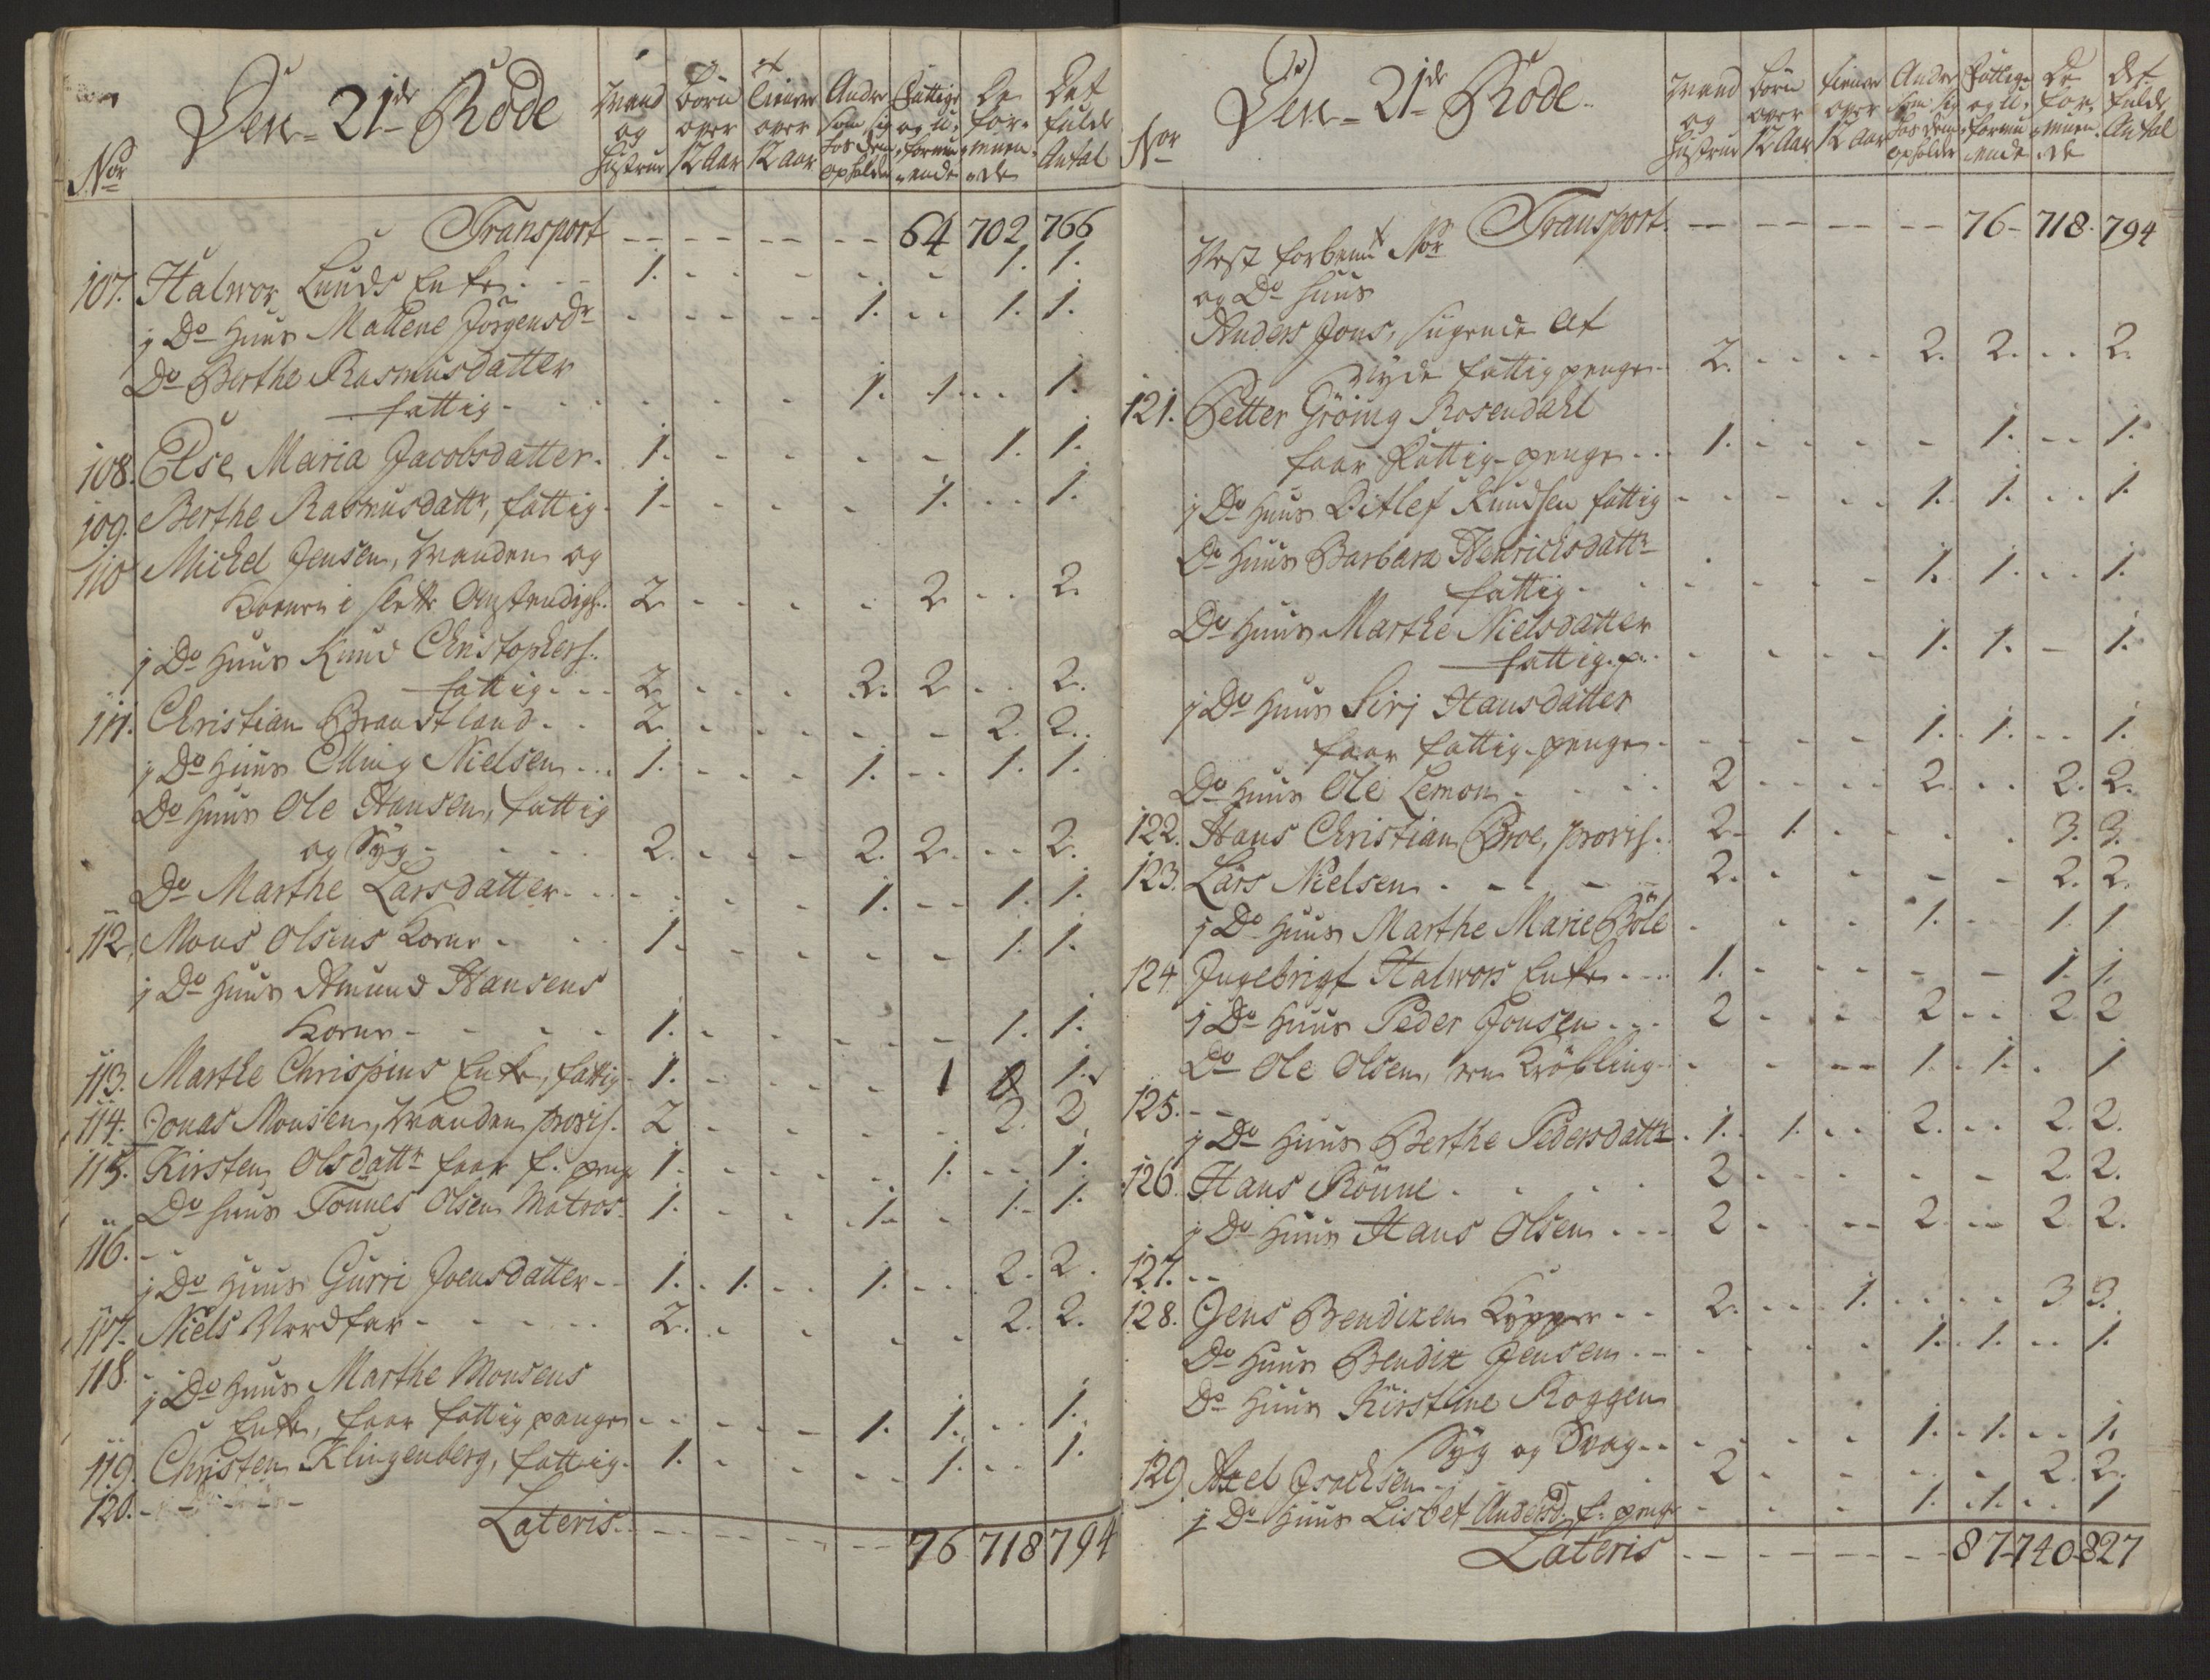 Den 21de Rode
Nor
Mand og Hustrue
Börn over 12 Aar
Tiener over 12 Aar
Andre som sig hos dem opholder
Fattige og u-formuende
De formuende
Det fulde Antal
Transport - - - - 64 702 766
107. Halwor Lunds Enke 1. 1. 1.
j Do Huus Mallene Jörgensdr 1. 1. 1.
Do Berthe Rasmusdatter
fattig - 1. 1. 1.
108. Else Maria Jacobsdatter. 1. 1. 1.
109. Berthe Rasmusdattr, fattig. 1. 1. 1.
110 Michel Jensen, Manden og
Konen i slette Omstendigh. 2 2 2
j Do Huus Knud Christophers.
fattig 2 2. 2 2.
111. Christian Brandtland 2 2. 2.
j Do Huus Elling Nielsen 1. 1. 1. 1.
Do Huus Ole Hansen, fattig
og Syg - 2. 2. 2. 2.
Do Marthe Larsdatter 1. 1. 1.
112. Mons Olsens Kone - 1. 1. 1.
j Do Huus Amund Hansens
Kone - 1. 1. 1.
113. Marthe Chrispins Enke, fattig 1. 1 1.
114. Jonas Monsen, Manden provis. 2 2. 2.
115. Kirsten Olsdattr faar f. peng 1. 1. 1.
Do Huus Tönnes Olsen Matros 1. 1. 1. 1.
116. - -
j Do Huus Gurri Joensdatter - 1. 1. 1. 2. 2.
117. Niels Nordfar - 2. 2. 2.
118. -
j Do Huus Marthe Monsens
Enke, faar fattig penge 1. 1. 1.
119. Christen Klingenberg, fattig. 1. 1. 1.
120. - -
Lateris - - - - 76 718 794
Den 21de Rode
Nor
Mand og Hustrue
Börn over 12 Aar
Tiener over 12 Aar
Andre som sig hos dem opholder
Fattige og u-formuende
De formuende
Det fulde Antal
Transport - - - - 76 718 794
Vest forbemt Nor
og Do Huus
Anders Jons, sugende at
Nyde fattig penge 2. 2. 2. 2.
121. Petter Gröing Rosendahl
faar Fattig-penge 1. 1. 1.
j Do Huus Ditlef Knudsen fattig 1. 1. 1.
Do Huus Barbara Henrichsdattr
fattig - 1. 1. 1.
Do Huus Marthe Nielsdatter
fattig. p. 1. 1. 1.
j Do Huus Sirj Hansdatter
faar fattig-penge 1. 1. 1.
Do Huus Ole Lemon 2 2. 2. 2.
122. Hans Christian Broe, provis. 2 1. 3. 3.
123. Lars Nielsen 2. 2. 2.
j Do Huus Marthe Marie Böle 1. 1. 1
124. Ingebrigt Halwors Enke 1. 1. 1.
j Do Huus Peder Jonsen 2 2 2 2
Do Ole Olsen, en Kröbling 1. 1. 1
125. - -
j Do Huus Berthe Pedersdattr 1. 1. 2. 2. 2.
126. Hans Rönne 2 2. 2.
j Do Huus Hans Olsen 2 2 2 2.
127. - -
128. Jens Bendixen Kypper 2. 1. 3 3.
Do Huus Bendix Jensen 1. 1. 1.
Do Huus Kirstine Roggen
Syg og Svag 1. 1. 1.
129. Axel Isachsen 2 2. 2.
j Do Huus Lisbet Andersd. f. penge 1. 1. 1
Lateris - - - - 87 740 827